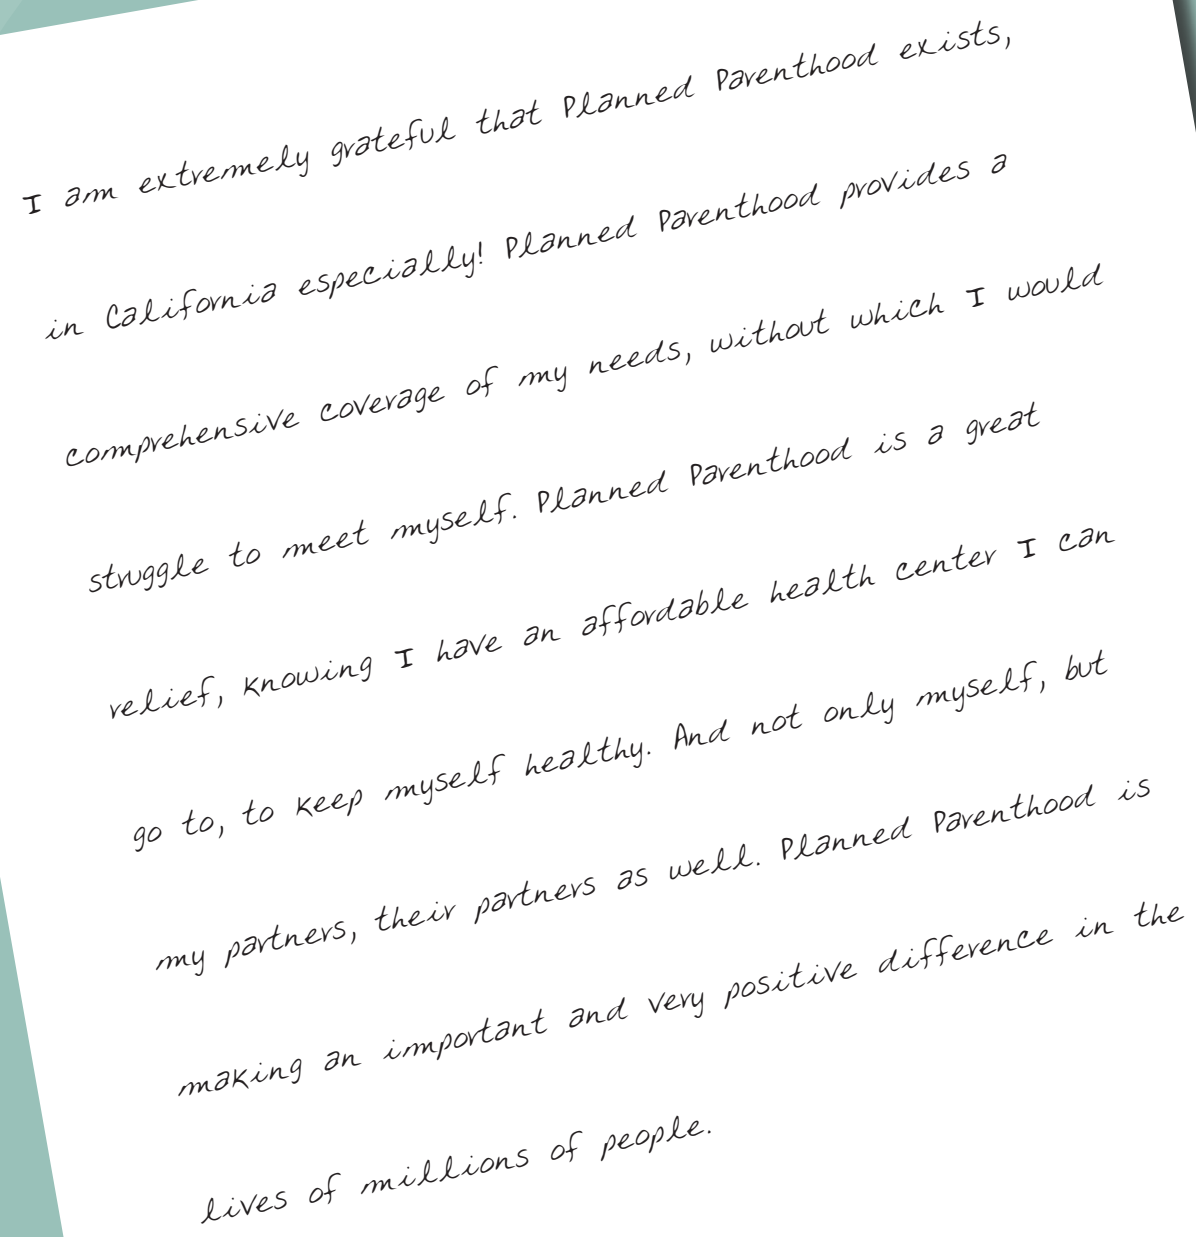 I am extremely grateful that Planned Parenthood exists,
in California especially! Planned Parenthood provides a
comprehensive coverage of my needs, without which I would
struggle to meet myself. Planned Parenthood is a great
relief, knowing I have an affordable health center I can
go to, to keep myself healthy. And not only myself, but
my partners, their partners as well. Planned Parenthood is
making an important and very positive difference in the
lives of millions of people.